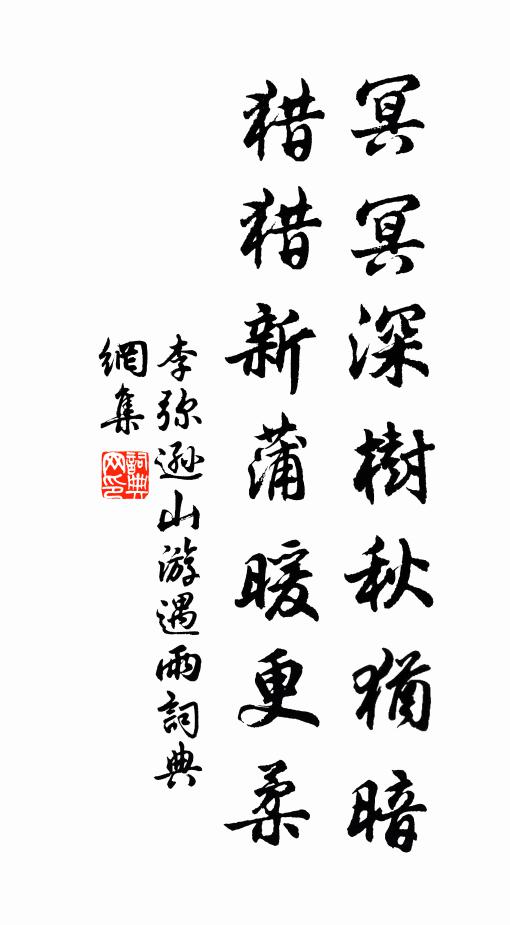 冥冥深樹秋猶暗
猎猎新蒲暖更柔
李弥遜山游遇雨詞典
網集
詞典網印